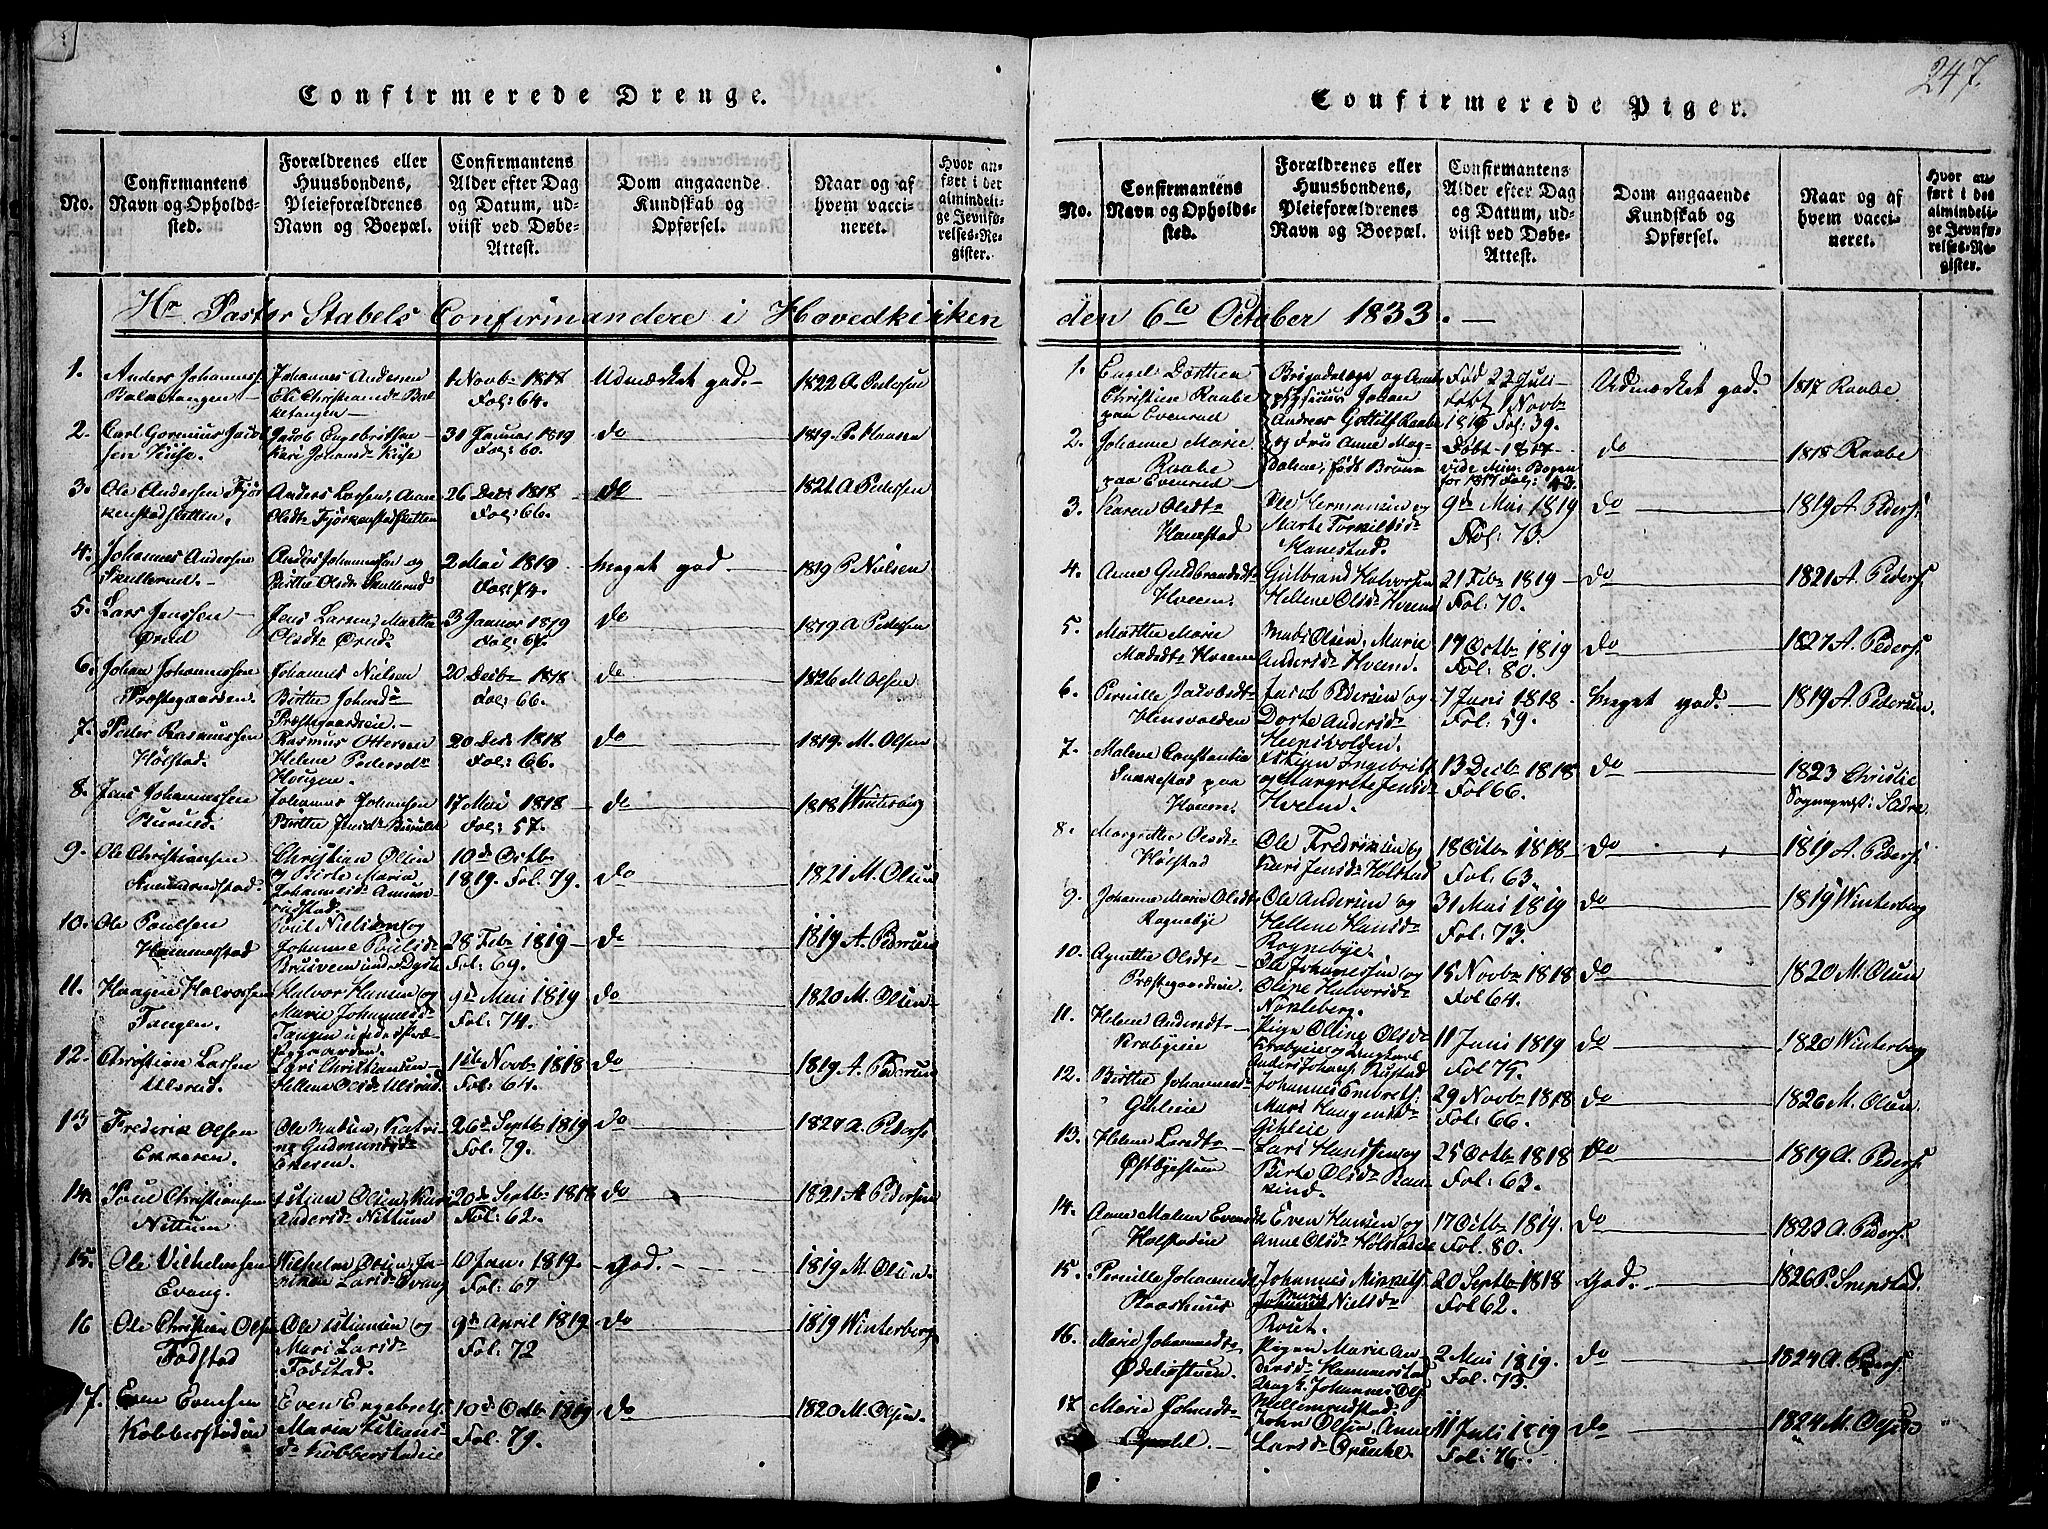 247.
Confirmerede Drenge.
No.
Confirmantens
Navn og Opholds-
sted.
Forældrenes eller
Huusbondens,
Pleieforældrenes
Navn og Boepæl.
Confirmantens
Alder efter Dag
og Datum, ud-
viist ved Døbe-
Attest.
Dom angaaende
Kundskab og
Opførsel.
Naar og af
hvem vacci-
neret.
Hvor an-
ført i det
almindeli-
ge Jevnfø-
relses-Re-
gister.
Hr Pastor Stabels Confirmandere i Hovedkirken
1.
Anders Johanness:
Balketangen
Johannes Andersen
Eli Christiansdr Bal-
ketangen
1 Novbr 1818
Fol: 64.
Udmærket god.
1822 A Pedersen
2.
Carl Gorenius Jacob
sen Kise.
Jacob Engebritsen
Kari Johansdr Kise
31 Januar 1819
Fol: 60.
do
1819. P. Hansen
3.
Ole Andersen Fjør
kenstadsletten.
Anders Larsen, Anne
Olsdtr Fjørkenstadsletten
26 Dec: 1818
Fol: 66.
do
1821 A Pedersen
4.
Johannes Andersen
Skullerud.
Anders Johannessen og
Birthe Olsdtr Skullerud
2 Mai 1819
Fol: 74.
Meget god.
1819 P. Nielsen
5.
Lars Jenssen
Ørud
Jens Larsen, Marthe
Olsdtr Ørud
3 Januar 1819
Fol: 67.
do
1819 A Pedersen
6.
Johan Johannessen
Præstegaarden.
Johannes Nielsen
Birthe Johnsdr
Præstegaardseie.
20 Decbr 1818
Fol: 66.
do
1826 M Olsen
7.
Peder Rasmussen
Hølstad.
Rasmus Ottersen
Helene Pedersdr
Hougen.
20 Dec: 1818
Fol: 66.
do
1819. M. Olsen
8.
Jens Johannessen
Johannes Johansen
Birthe Jensdr
17 Mai 1818
Fol: 57.
do
1818 Winterberg
9.
Ole Christiansen
Amundrudstad.
Christian Olsen
og Birte Maria
Johannesdr Amund
rudstad.
10de Octb
1819. Fol. 79.
do
1821 M. Olsen
10.
Ole Paulsen
Hammerstad
Poul Nielsen og
Johanne Poulsdr
under Dyste
28 Febr 1819
Fol: 69.
do
1819 A. Pedersen
11.
Haagen Halvorsen
Tangen.
Halvor Hansen og
Marie Johannesdr
Tangen under Præ-
stegaarden.
9de Mai 1819
Fol: 74.
do
1820 M. Olsen
12.
Christian Larsen
Ulsrud.
Lars Christiansen
Hellene Olsdr Ulsrud
1ste Novbr 1818
Fol: 64.
do
1819 A. Pedersen
13
Frederik Olsen
Ekkeren.
Ole Madsen, Katri-
ne Gudmundsdr
Ekeren.
26de Septbr 1819
Fol. 79.
do
1827 A. Peders:
14.
Poul Christiansen
Nittum
Kristian Olsen, Kari
Andersdr Nittum
20de Septbr 1818
Fol: 62.
do
1821 A Pedersen
15.
Ole Vilhelmsen
Evang.
Wilhelm Olsen, Jo-
hanna Larsdr Evang
10 Jan: 1819.
Fol: 67
God.
1819 M. Olsen.
16
Ole Christian Olsen
Fodstad
Ole Kristiansen og
Mari Larsdr
Fodstad.
9de April 1819
Fol: 72
do
1819 Winterberg
17.
Even Evensen
Kobberstadeie
Even Engebretsen
Maria Kristians-
dr Kobberstadeie
10de Octbr 1819
Fol. 79.
do
1820 M. Olsen.
Confirmerede Piger.
No.
Confirmantens
Navn og Opholds-
sted.
Forældrenes eller
Huusbondens,
Pleieforældrenes
Navn og Boepæl.
Confirmantens
Alder efter Dag
og Datum, ud-
viist ved Døbe-
Attest.
Dom angaaende
Kundskab og
Opførsel.
Naar og af
hvem vacci-
neret.
Hvor an-
ført i det
almindeli-
ge Jevnfø-
relses-Re-
gister.
den 6te October 1833.
1.
Engel Dorthea
Christine Raabe
paa Evenrud
Brigadelæge og Amts
physicus Johan
Andreas Gottlif Raabe
Fød 22 Juli
døbt 1 Novbr
1816 Fol: 39.
Udmærket god.
1817 Raabe
2.
Johanne Marie
Raabe
paa Evenrud
og Fru Anne Mag-
dalene, født Bruun
Døbt 1817
vide Min: Bogen
for 1817 Fol: 43.
do
1818 Raabe
3.
Karen Olsdtr
Hanestad
Ole Hermansen og
Marte Torkildsdr
Hanestad.
9de Mai 1819
Fol: 73.
do
1819 A. Peders:
4.
Anne Guldbrandsdtr
Hveem.
Gulbrand Halvorsen
Hellene Olsdr Hveem
21 Febr 1819
Fol: 70.
do
1821 A. Peders:
5.
Marthe Marie
Madsdtr Hveem
Mads Olsen, Marie
Andersdr Hveem.
17 Octbr 1819
Fol: 80.
do
1827 A. Peders:
6.
Pernille Jacobsdtr
Hensvolden
Jacob Pedersen og
Dorte Andersdr
Hensvolden.
7 Juni 1818
Fol. 59.
Meget god.
1819 A. Pedersen.
7.
Malene Constantia
Sukkestad paa
Hveem.
Ingebrits:
og Margrete Jensdr
Hveem.
13 Decbr 1818
Fol 66.
do
1823 Christie
Sognepræst:
8.
Margrethe Olsdtr
Hølstad
Ole Fredriksen og
Kari Jensdr Hølstad
18 Octbr 1818
Fol: 63.
do
1819 A. Peders:
9.
Johanne Marie Olsdtr
Rognebye
Ole Andersen og
Hellene Hansdr
Rognebye.
31 Mai 1819
Fol: 73.
do
1819 Winterberg
10.
Agnethe Olsdtr
Præstegaardeie.
Ole Johannessen og
Olipe Halvorsdr
Nøkleberg.
15 Novbr 1818
Fol 64.
do
1820 M. Olsen
11.
Helene Andersdtr
Krabyeie
Pige Olline Olsdr
Krabyeie og Ungkarl
Anders Johans: Rustad
11 Juni 1819
Fol 75.
do
1820 Winterberg
12.
Birthe Johannesdr
Gihleie
Johannes Embrets:
Mari Haagensdr
Gihleie
29 Novbr 1818
Fol: 66.
do
1826 M. Olsen.
13.
Helene Larsdtr
Østbyestuen
Lars Hanssen og
Birte Olsdr Ban-
kind.
25 Octbr 1818
Fol: 63.
do
1819 A. Peders:
14.
Anne Malene Evensdtr
Holstadeie
Even Hansen og
Anne Olsdr Hølstadeie
17 Octbr 1819.
Fol. 80.
do
1820 A. Peders:
15.
Pernille Johannesdtr
Johannes Mikkels:
Mari
Nielsdr
20 Septbr 1818
Fol 62.
God.
1826 P.
16.
Marie Johannesdtr
Ødeliestuen.
Pigen Marie An-
dersdr Hammerstad
Johannes Ols:
2 Mai 1819.
Fol: 73.
do
1824 A. Peders:
17
Marie Johnsdtr
John Olsen, Anne
Larsdr
11 Juli 1819
Fol: 76.
do
1824 M. Olsen